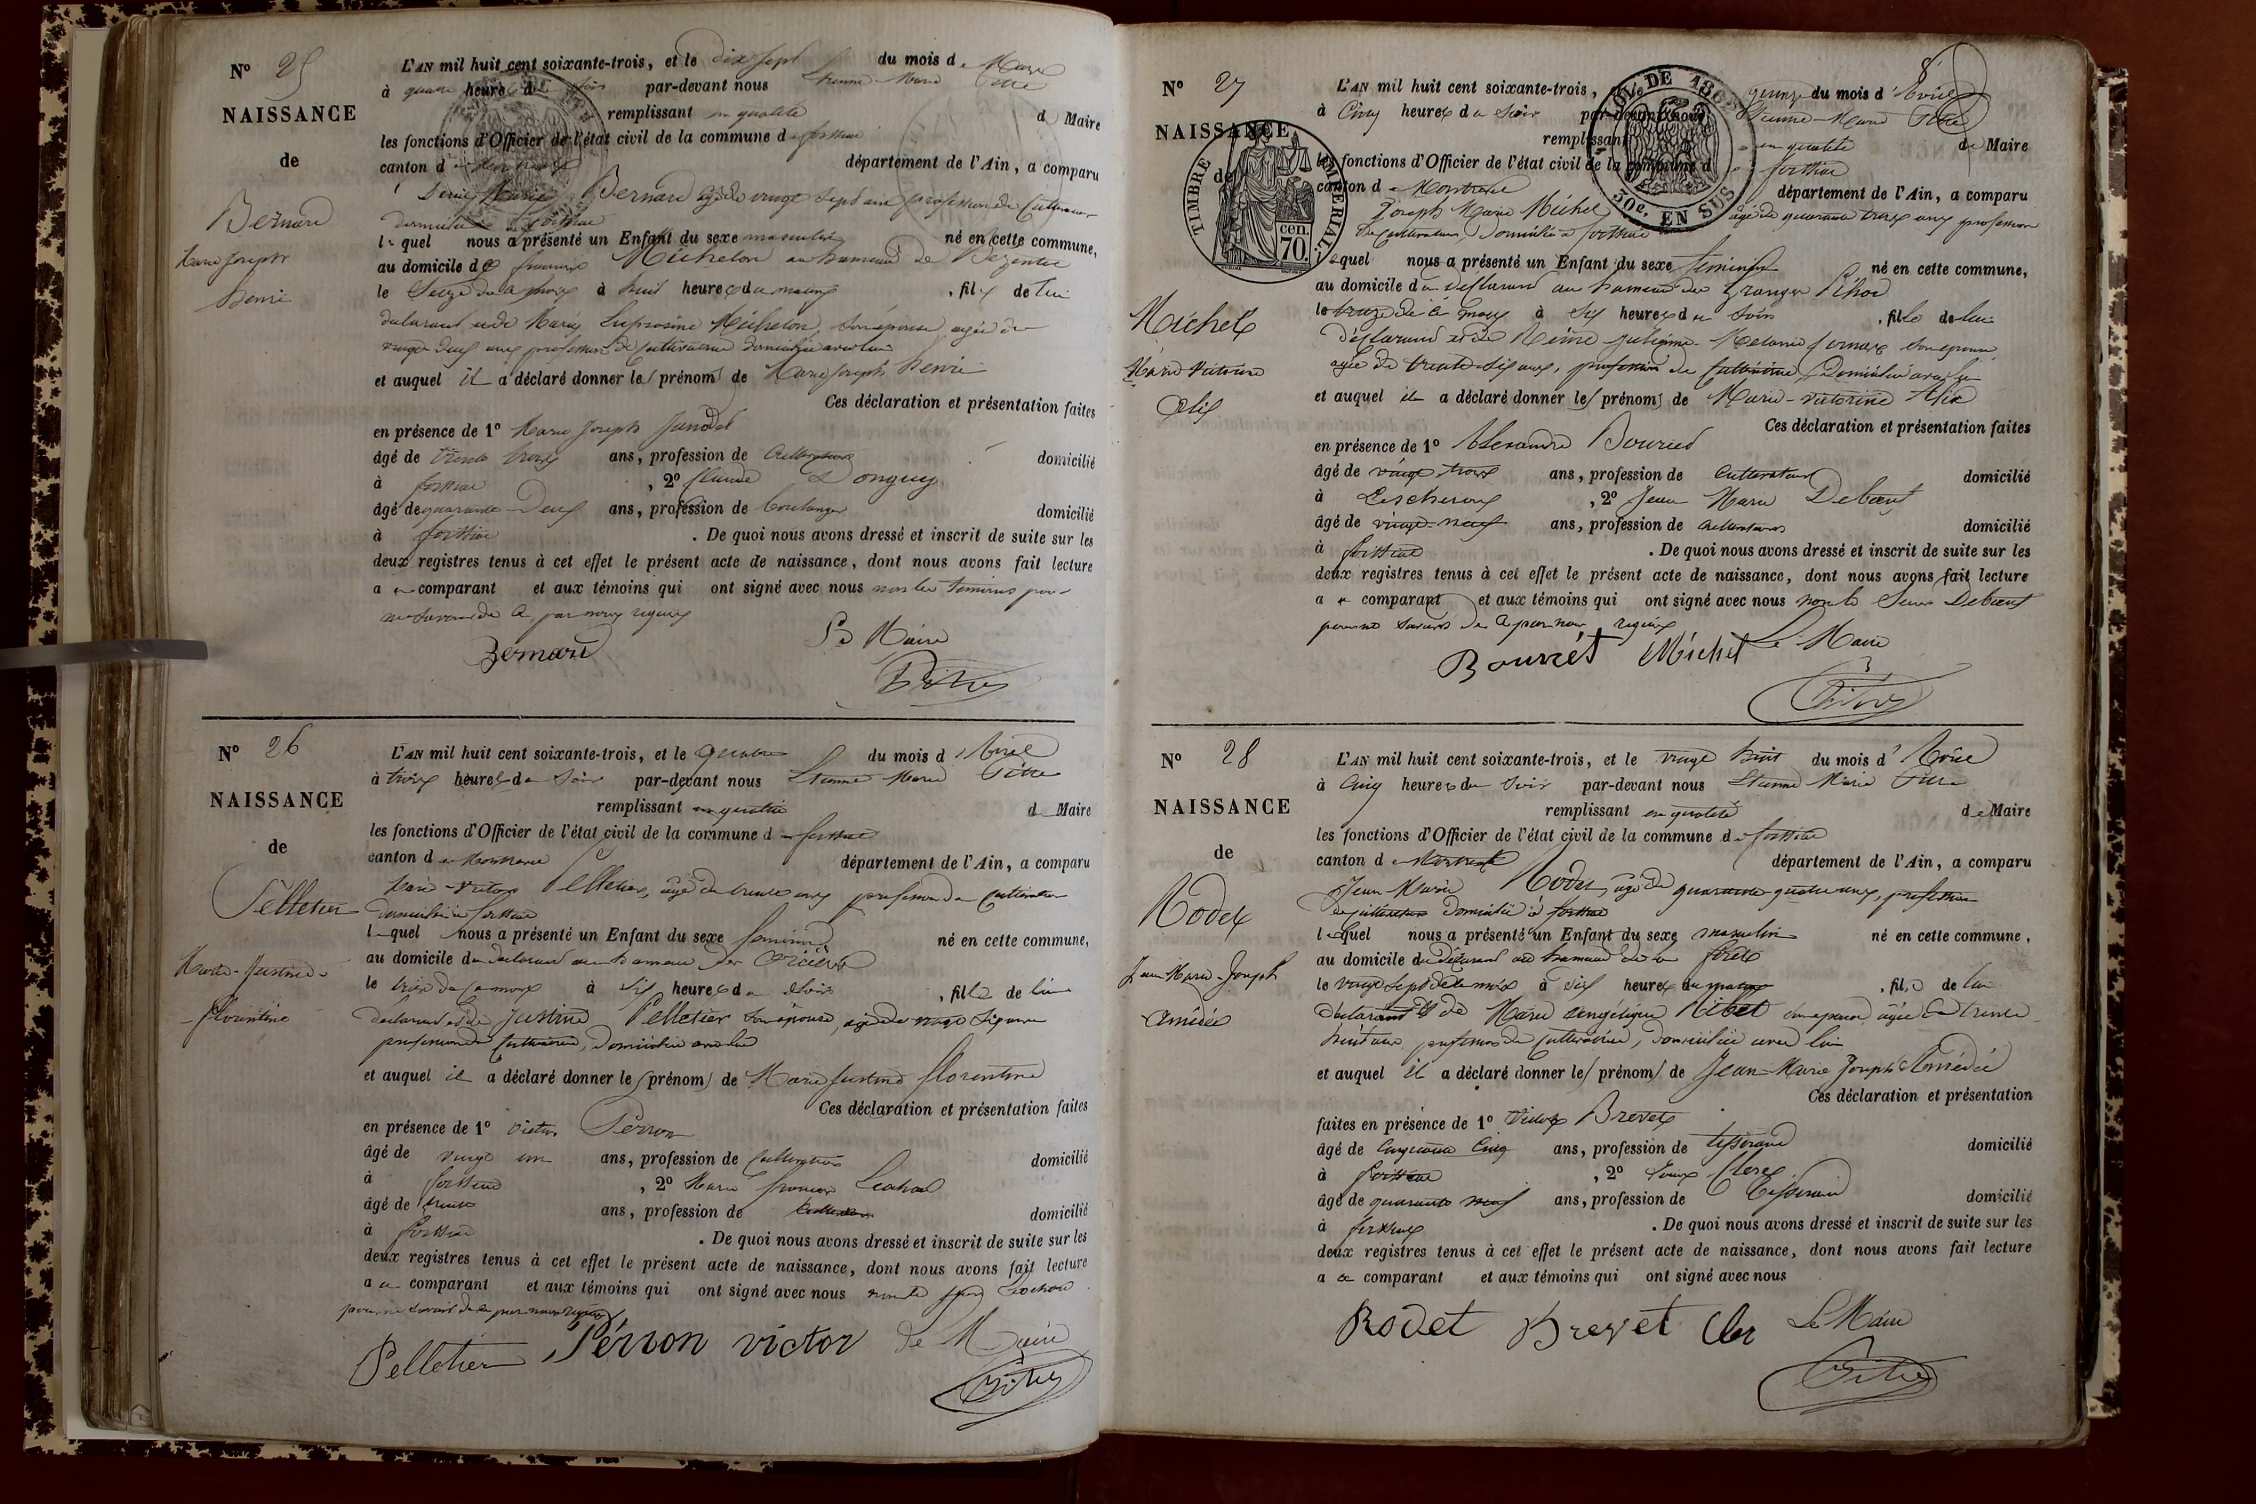 N° 25
NAISSANCE
de
Bernard
Marie Joseph
Henri
L'AN mil huit cent soixante-trois, et le dix sept du mois de Mars
à quatre heures du soir par-devant nous Etienne Marie Pitre
remplissant en qualité de Maire
les fonctions d'Officier de l'état civil de la commune de
canton de département de l'Ain, a comparu
Marie Bernard âgé de vingt sept ans profession de cultivateur
domicilié à
lequel nous a présenté un Enfant du sexe masculin né en cette commune,
au domicile de Michelon au hameau de
le seize de ce mois à huit heures du matin, fils de lui
déclarant et de Marie Euphrosine Michelon, son épouse, agée de
vingt deux ans profession de cultivatrice domiciliée avec lui
et auquel il a déclaré donner les prénoms de Marie Joseph Henri
Ces déclaration et présentation faites
en présence de 1° Marie Joseph
âgé de trente trois ans, profession de cultivateur domicilié
à , 2° Claude Donguy
âgé de quarante-deux ans, profession de boulanger domicilié
à . De quoi nous avons dressé et inscrit de suite sur les
deux registres tenus à cet effet le présent acte de naissance, dont nous avons fait lecture
au comparant et aux témoins qui ont signé avec nous non les témoins pour
ne savoir de ce par nous requis
Bernard Le Maire
Pitre
N° 26
NAISSANCE
de
Pelletier
Marie-Justine-
-florentine
L'AN mil huit cent soixante-trois, et le quatre du mois d'Avril
à trois heures du soir par-devant nous Etienne Marie Pitre
remplissant en qualité de Maire
les fonctions d'Officier de l'état civil de la commune de
canton de département de l'Ain, a comparu
Marie-Victor Pelletier, âgé de trente ans profession de cultivateur
domicilié à
lequel nous a présenté un Enfant du sexe féminin né en cette commune,
au domicile du déclarant au hameau des
le trois de ce mois à six heures du soir, fille de lui
déclarant et de Justine Pelletier son épouse, agée de vingt six ans
profession de cultivatrice, domiciliée avec lui
et auquel il a déclaré donner les prénoms de Marie Justine florentine
Ces déclaration et présentation faites
en présence de 1° Victor Perron
âgé de vingt un ans, profession de cultivateur domicilié
à , 2° Marie Lachod
âgé de trente ans, profession de cultivateur domicilié
à . De quoi nous avons dressé et inscrit de suite sur les
deux registres tenus à cet effet le présent acte de naissance, dont nous avons fait lecture
au comparant et aux témoins qui ont signé avec nous
pour ne savoir de ce par nous requis
Pelletier Pérron victor Le Maire
Pitre
N° 27
NAISSANCE
de
Michel
Marie Victorine
Alix
TIMBRE IMPERIAL
cen.
70.
30e. EN SUS
L'AN mil huit cent soixante-trois, quinze du mois d'Avril
à Cinq heures du soir par-devant nous Etienne-Marie Pitre
remplissant en qualité de Maire
les fonctions d'Officier de l'état civil de la commune de
canton de département de l'Ain, a comparu
Joseph Marie Michel âgé de quarante trois ans profession
de cultivateur, domicilié à
lequel nous a présenté un Enfant du sexe féminin né en cette commune,
au domicile du déclarant au hameau de
le treize de ce mois à six heures du soir, fille de lui
déclarant et de Melanie son épouse,
agée de trente-six ans, profession de cultivatrice, domiciliée avec lui
et auquel il a déclaré donner les prénoms de Marie-victorine Alix
Ces déclaration et présentation faites
en présence de 1° Alexandre Bourret
âgé de vingt trois ans, profession de cultivateur domicilié
à Lescheroux, 2° Jean Marie Debœuf
âgé de vingt-neuf ans, profession de cultivateur domicilié
à . De quoi nous avons dressé et inscrit de suite sur les
deux registres tenus à cet effet le présent acte de naissance, dont nous avons fait lecture
au comparant et aux témoins qui ont signé avec nous non le Debœuf
pour ne savoir de ce par nous requis
Bourrét Michel Le Maire
Pitre
N° 28
NAISSANCE
de
Rodet
Jean Marie-Joseph
Amédée
L'AN mil huit cent soixante-trois, et le vingt huit du mois d'Avril
à Cinq heures du soir par-devant nous Etienne Marie Pitre
remplissant en qualité de Maire
les fonctions d'Officier de l'état civil de la commune de
canton de département de l'Ain, a comparu
Jean-Marie Rodet, âgé de quarante-quatre ans, profession
de cultivateur domicilié à
lequel nous a présenté un Enfant du sexe masculin né en cette commune,
au domicile du déclarant au hameau de la
le vingt sept de ce mois à six heures du matin, fils de lui
déclarant et de Marie Angélique Nibel son épouse agée de trente
huit ans, profession de cultivatrice, domiciliée avec lui
et auquel il a déclaré donner les prénoms de Jean-Marie Joseph Amédée
Ces déclaration et présentation
faites en présence de 1° Victor Brevet
âgé de Cinquante Cinq ans, profession de tisserand domicilié
à , 2° Clerc
âgé de quarante neuf ans, profession de tisserand domicilié
à . De quoi nous avons dressé et inscrit de suite sur les
deux registres tenus à cet effet le présent acte de naissance, dont nous avons fait lecture
au comparant et aux témoins qui ont signé avec nous
Rodet Brevet Cler Le Maire
Pitre